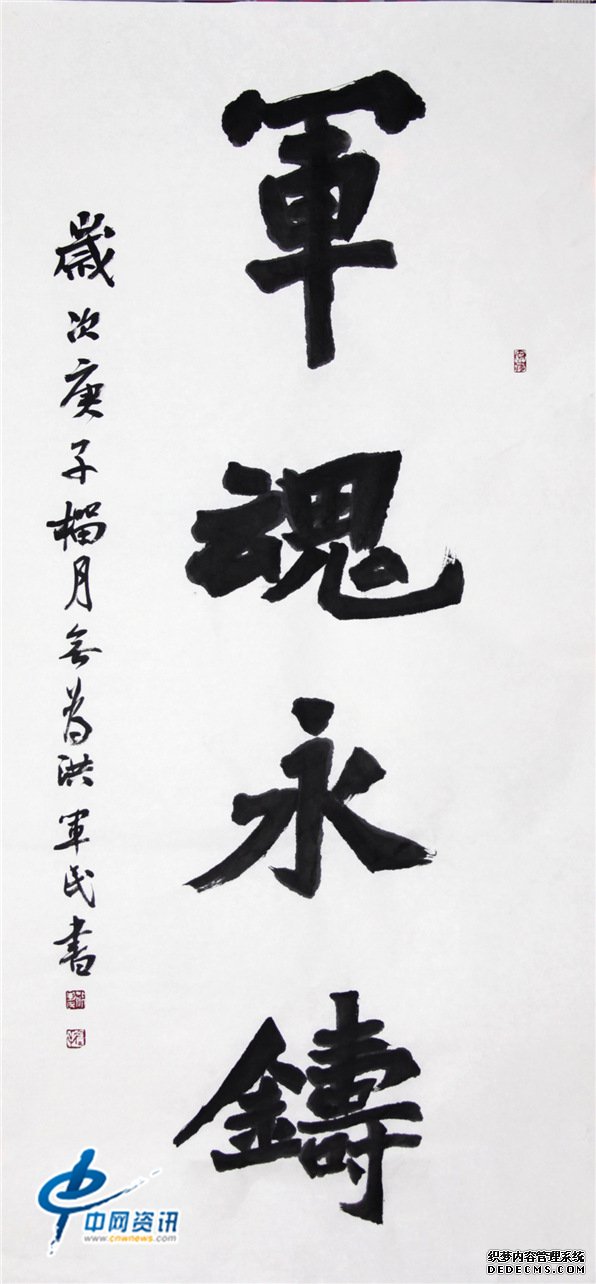 軍魂永鑄
歲次庚子榴月 洪軍民書
中网资讯
www.cnwnews.com
织梦内容管理系统
DEDECMS.COM